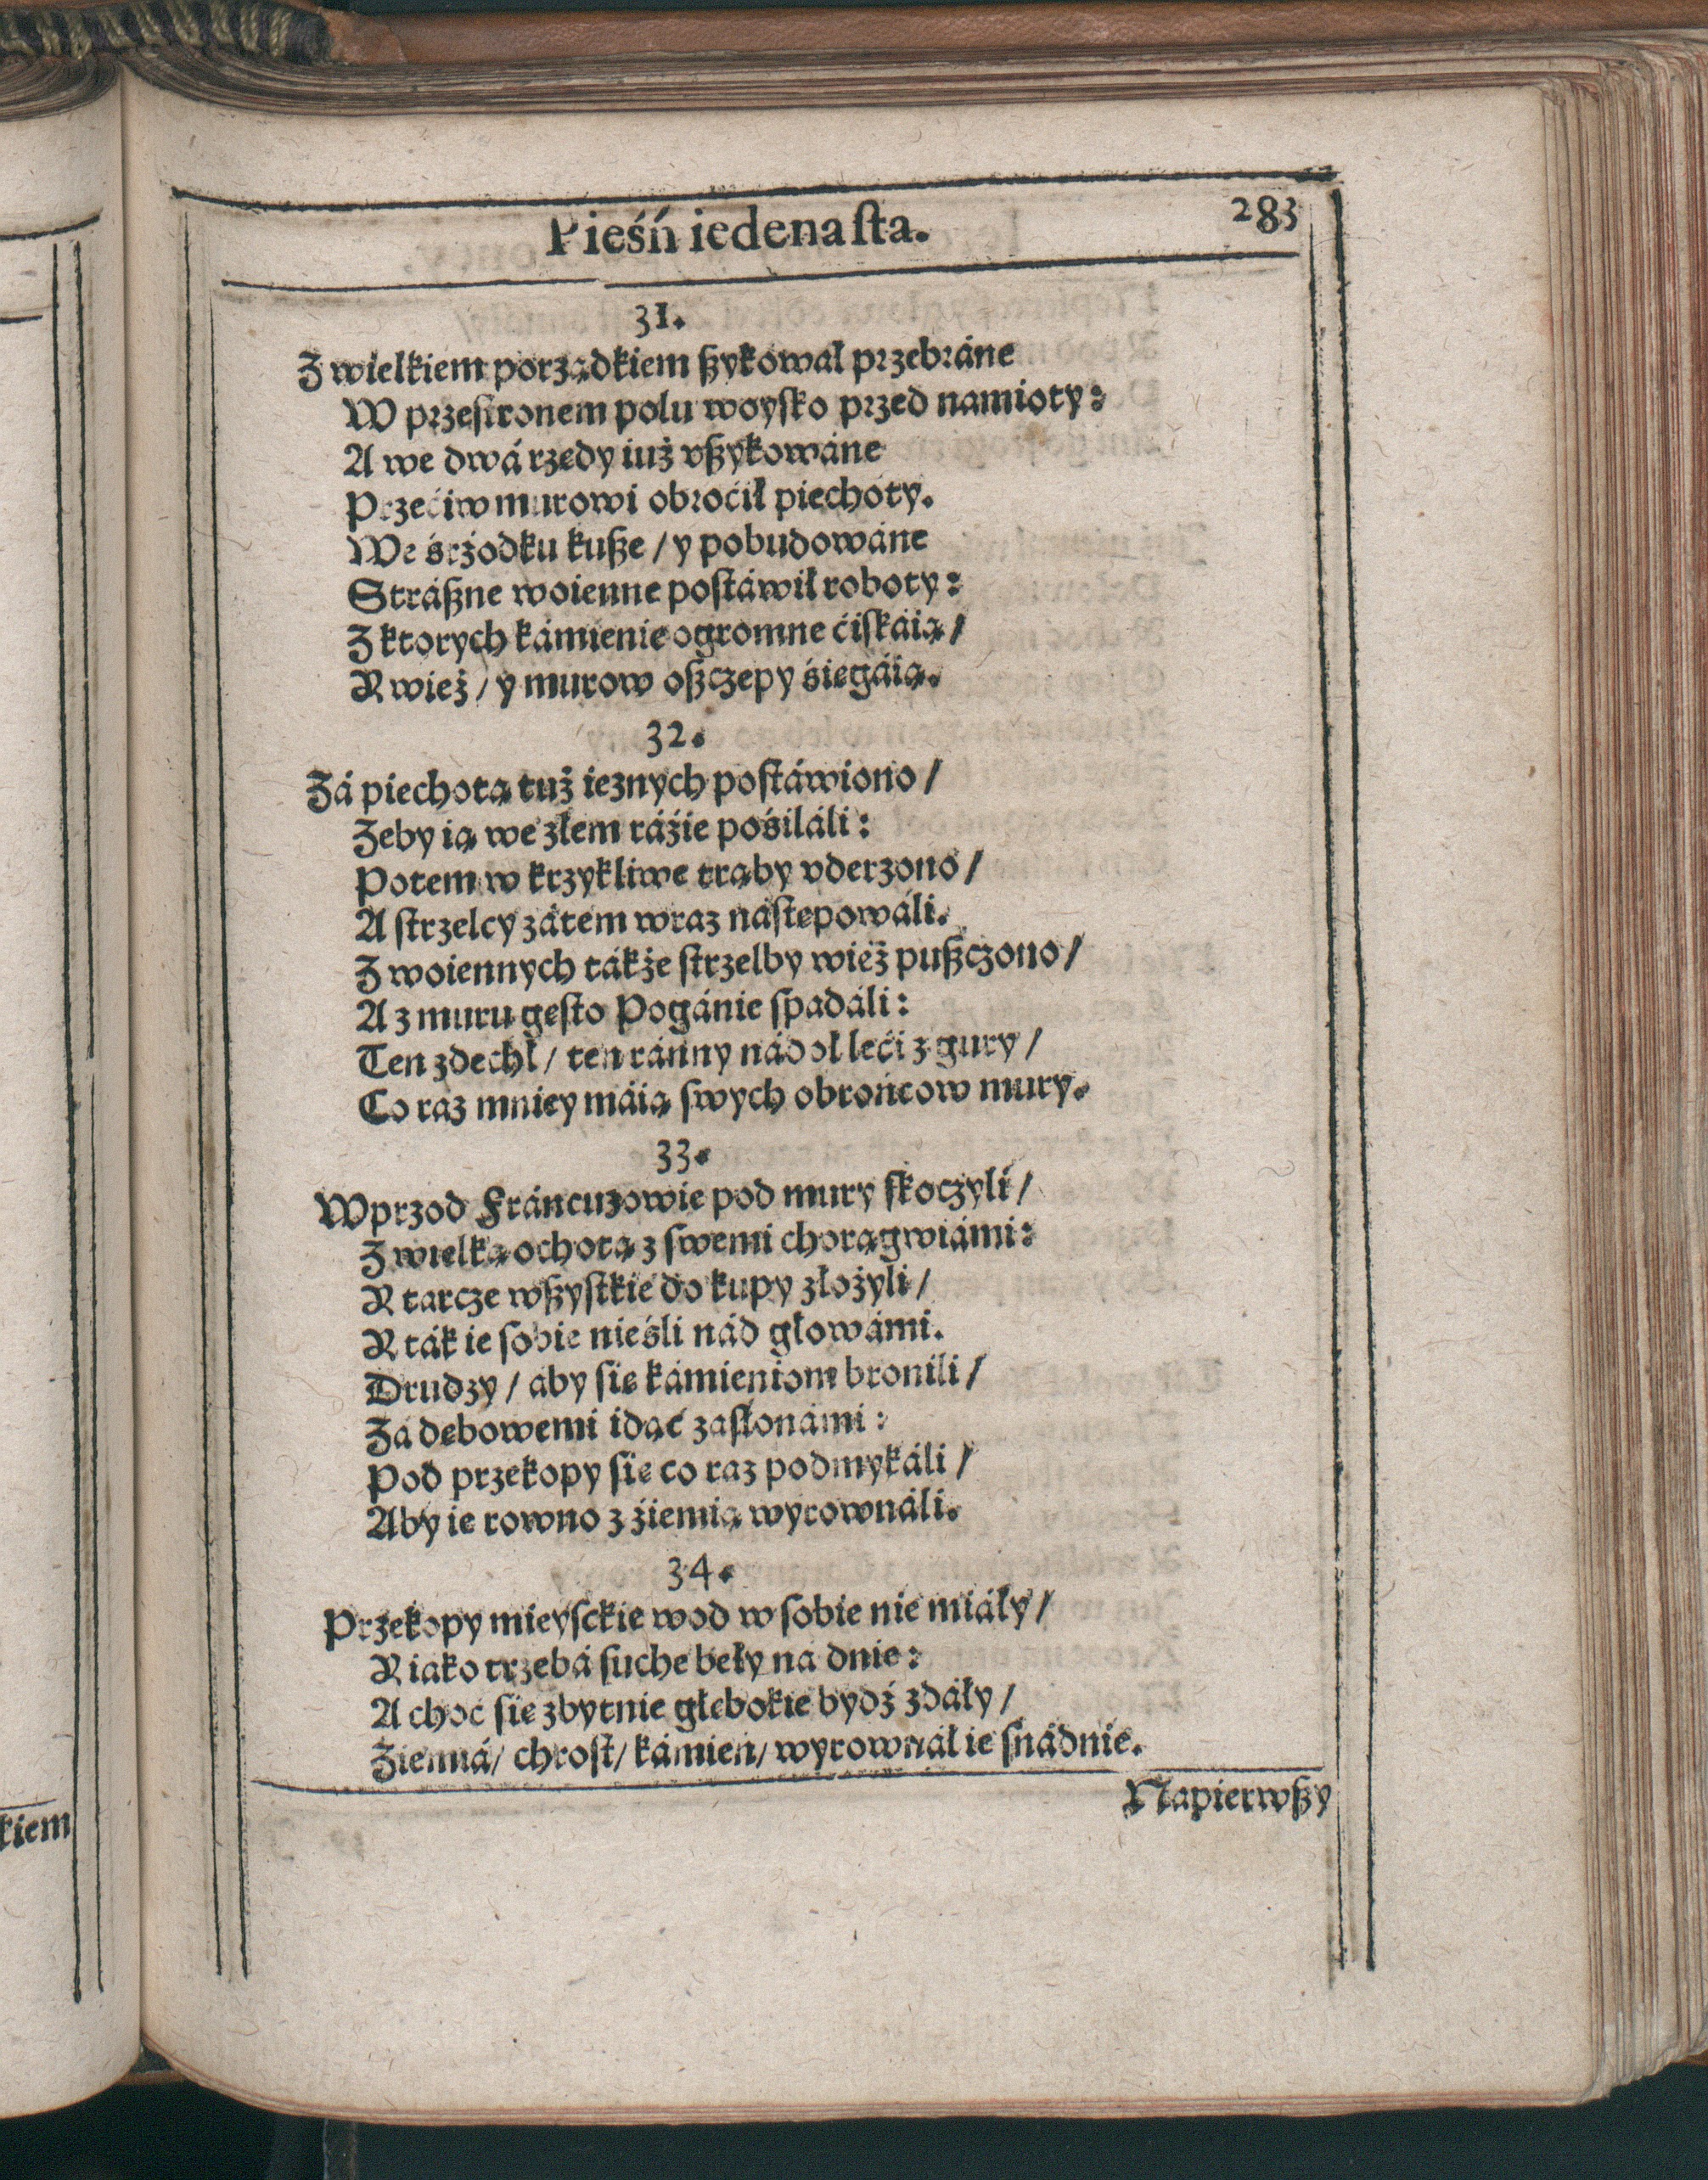 Pieśń iedenasta. 283
31.
Z wielkiem porządkiem ßykował przebráne
W przestronem polu woysko przed namioty:
A we dwá rzędy iuż vßykowáne
Przeciw murowi obroćił piechoty.
We śrzodku kuße / y pobudowáne
Stráßne woienne postáwił roboty:
Z ktorych kámienie ogromne ćiskáią /
R wież / y murow oßczepy śięgáią.
32.
Zá piechotą tuż ieznych postáwiono /
Zeby ią we złem ráźie pośiláli:
Potem w krzykliwe trąby vderzono /
A strzelcy zátem wraz nástępowáli.
Z woiennych tákże strzelby wież pußczono /
A z muru gęsto Pogánie spadáli:
Ten zdechł / ten ránny nádoł leći z gury /
Co raz mniey máią swych obrońcow mury.
33.
Wprzod Fráncuzowie pod mury skoczyli /
Z wielką ochotą z swemi chorągwiámi:
R tarcze wßystkie do kupy złożyli /
R ták ie sobie nieśli nád głowámi.
Drudzy / aby się kámieniom bronili /
Zá dębowemi idąc zasłonámi:
Pod przekopy się co raz podmykáli /
Aby ie rowno z źiemią wyrownáli.
34.
Przekopy mieysckie wod w sobie nie miáły /
R iako trzebá suche beły na dnie:
A choć się zbytnie głębokie bydź zdáły /
Ziemiá / chrost / kámień / wyrownał ie snádnie.
Napierwßy
kiem